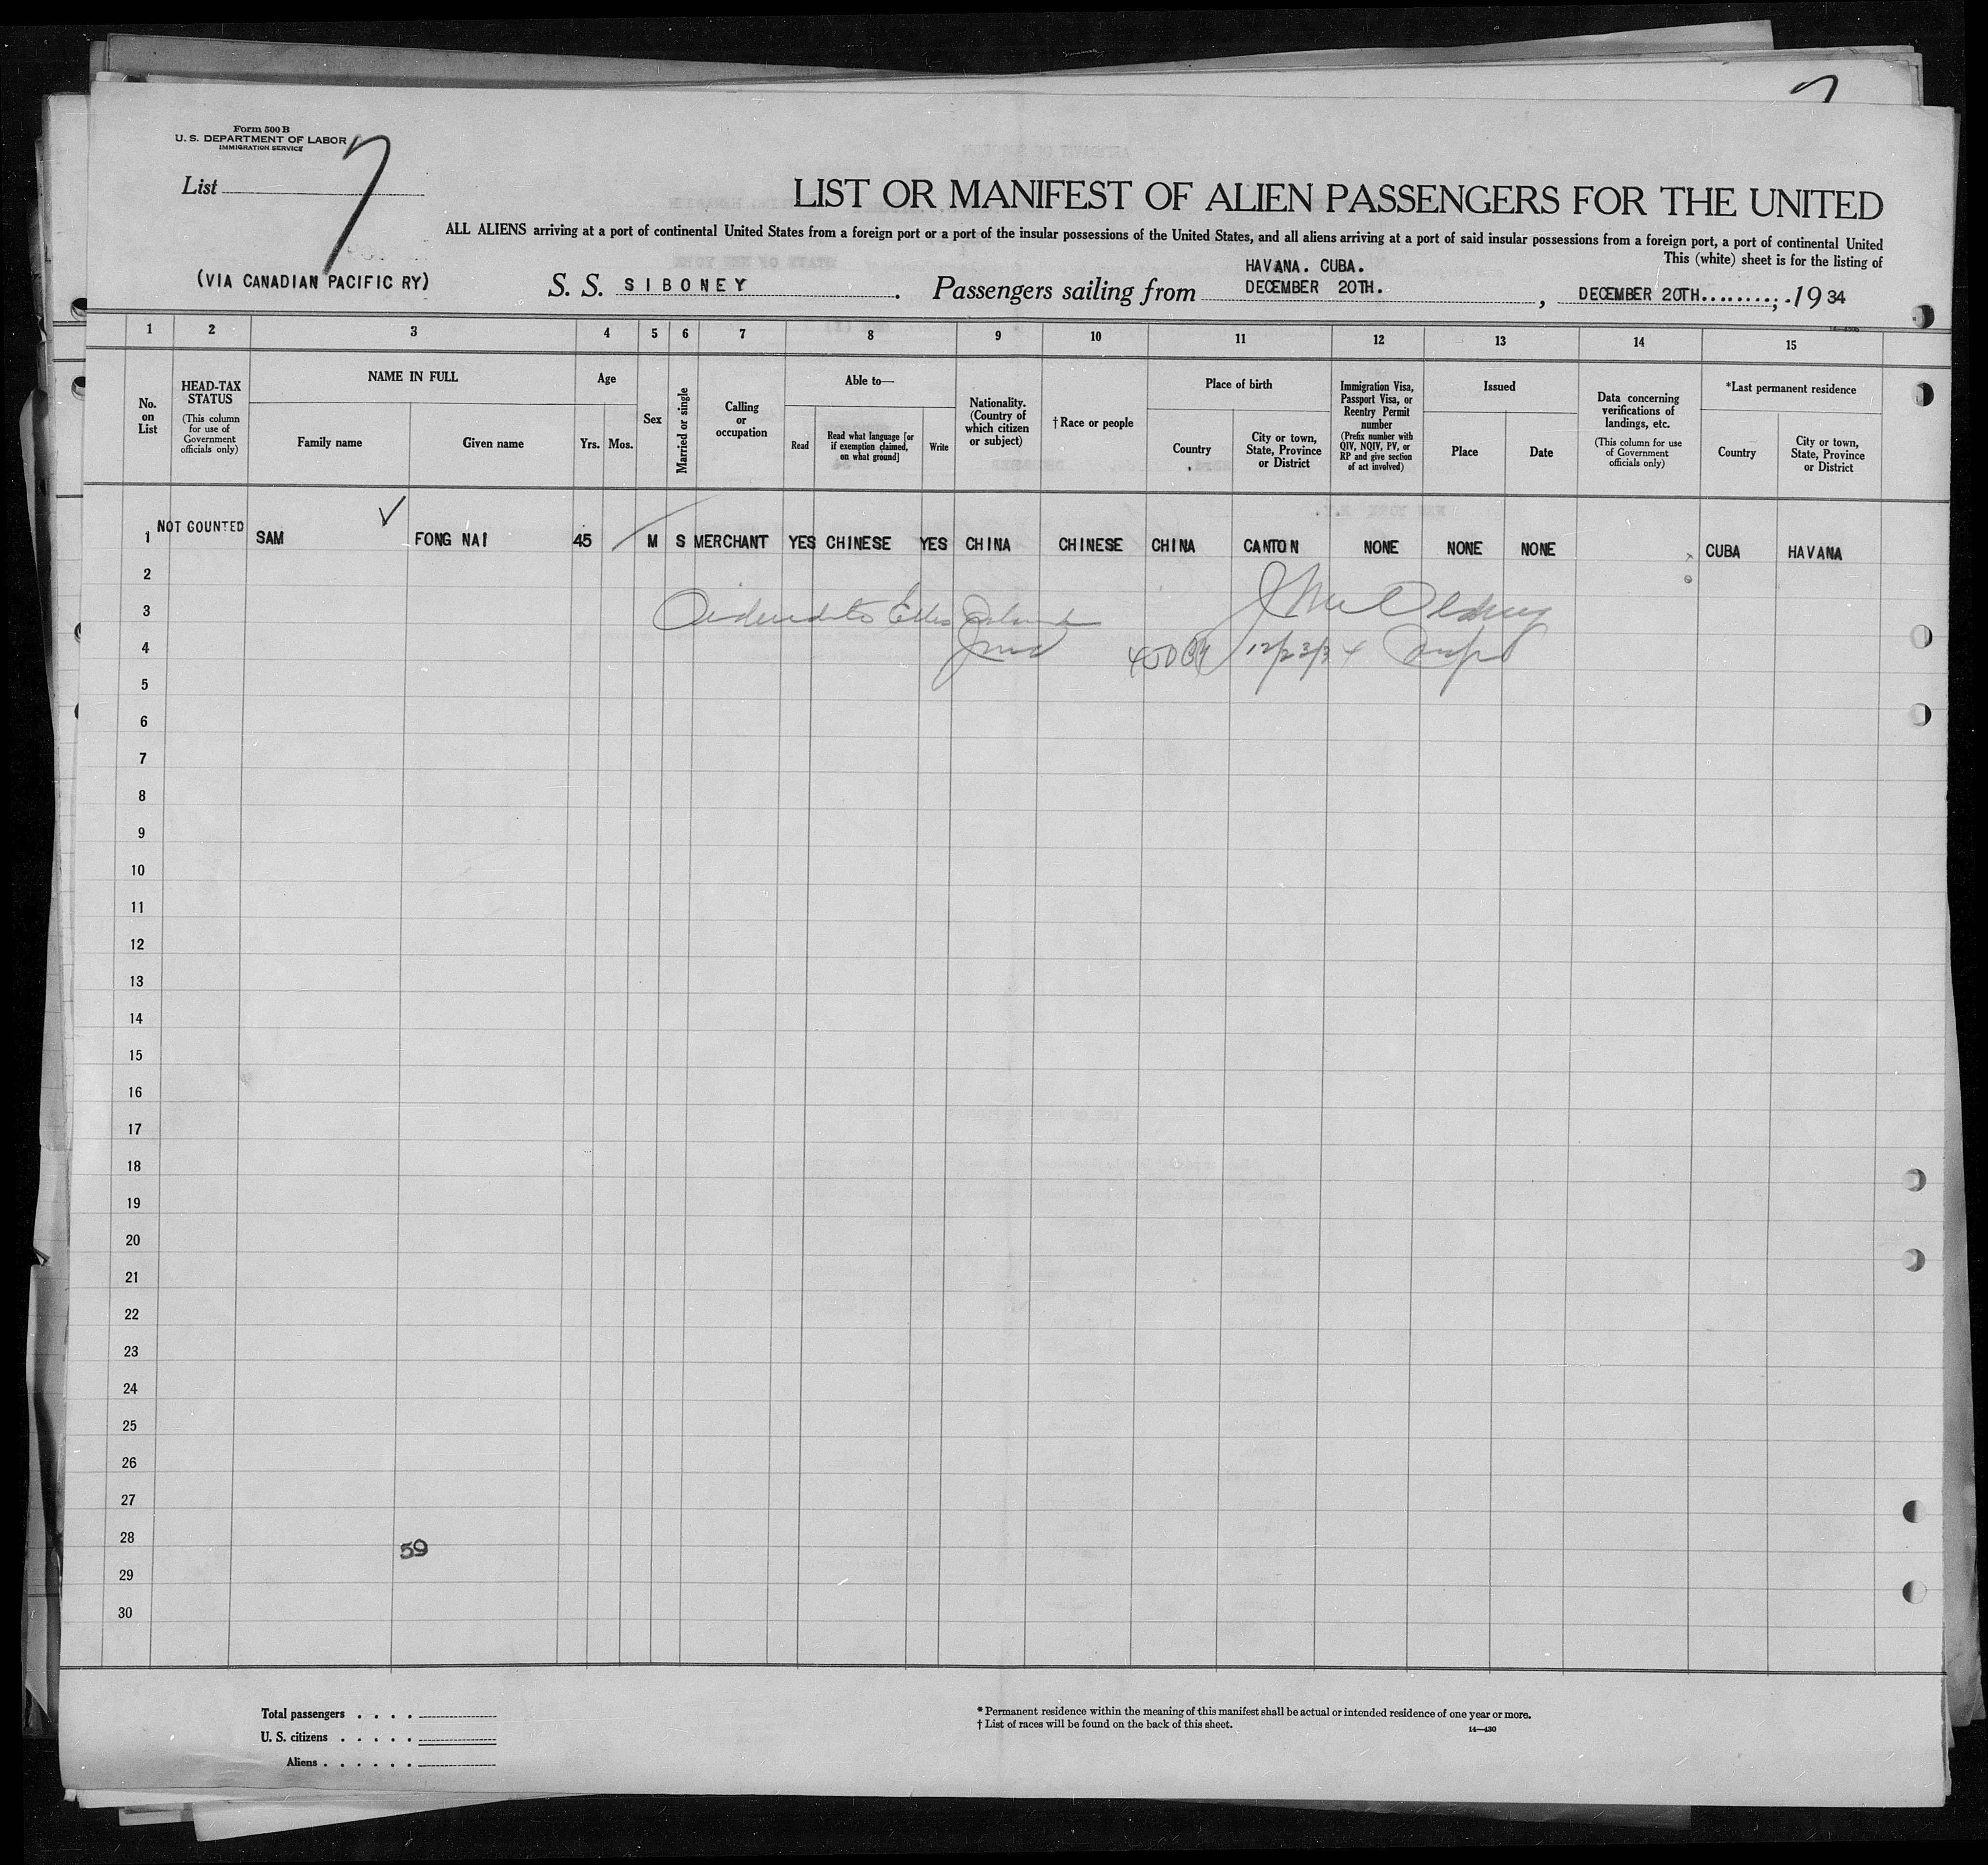 7
Form 500 B
U. S. DEPARTMENT OF LABOR
IMMIGRATION SERVICE
List 7
LIST OR MANIFEST OF ALIEN PASSENGERS FOR THE UNITED
ALL ALIENS arriving at a port of continental United States from a foreign port or a port of the insular possessions of the United States, and all aliens arriving at a port of said insular possessions from a foreign port, a port of continental United
This (white) sheet is for the listing of
(VIA CANADIAN PACIFIC RY)
S. S. SIBONEY. Passengers sailing from HAVANA. CUBA. DECEMBER 20TH., DECEMBER 20TH.........;.1934
1 2 3 4 5 6 7 8 9 10 11 12 13 14 15
No. on List
HEAD-TAX STATUS
(This column for use of Government officials only)
NAME IN FULL
Family name
Given name
Age
Yrs.
Mos.
Sex
Married or single
Calling or occupation
Able to—
Read
Read what language [or if exemption claimed, on what ground]
Write
Nationality. (Country of which citizen or subject)
†Race or people
Place of birth
Country
City or town, State, Province or District
Immigration Visa, Passport Visa, or Reentry Permit number
(Prefix number with QIV, NQIV, PV, or RP and give section of act involved)
Issued
Place
Date
Data concerning verifications of landings, etc.
(This column for use of Government officials only)
*Last permanent residence
Country
City or town, State, Province or District
1 NOT COUNTED SAM FONG NAI 45 M S MERCHANT YES CHINESE YES CHINA CHINESE CHINA CANTON NONE NONE NONE CUBA HAVANA
2
3 to Ellis Island
4 12/23/34
5
6
7
8
9
10
11
12
13
14
15
16
17
18
19
20
21
22
23
24
25
26
27
28
59
29
30
Total passengers . . . .
U. S. citizens . . . . .
Aliens . . . . . .
* Permanent residence within the meaning of this manifest shall be actual or intended residence of one year or more.
† List of races will be found on the back of this sheet.
14—430